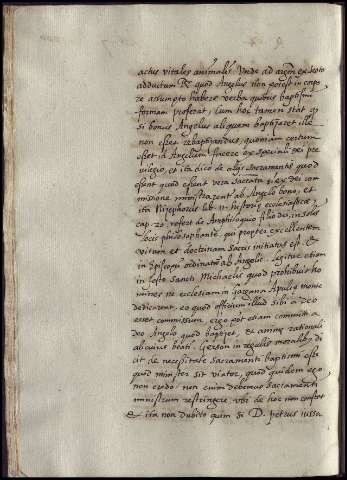 actus vitales animalis. Unde ad argm ex Scoto
adductum R. quod Angelus non potest in corpo
re assumpto habere verba quibus baptismi
formam proferat. Cum hoc tamen stat q
si bonus Angelus aliquem baptizaret ille
non esset rebaptizandus, quoniam certum
esset in Angelum facere ex speciali dei pri
vilegio, et ita dico de alijs Sacramentis quod
essent quod essent vera Sacrata q. ex dei com
missione ministrarent ab Angelo bono, et
ita Nicephorus lib. historie ecclesiastice
cap. 20. refert de Amphiloquio filio dei, in solis
locis philosophante, qui propter excellentem
vitam et doctrinam Sacris initiatus est, et
in Episcopum ordinatus ab Angelis. legitur etiam
in festo Sancti Michaelis quod prohibuit ho
mines ne ecclesiam in Gargano Apulie monte
dedicarent, eo quod officium illud sibi a deo
esset commissum. ergo pot etiam committi a
deo Angelo quod baptizet, et animę rationali
alicuius beati. Gerson in regulis moralibus di
cit de necessitate Sacramenti baptismi esse
quod minister sit viator, quod quidem ego
non credo. non enim debemus Sacramenti
ministrum restringere ubi de hoc non constet
et ita non dubito quin si D. petrus iussa